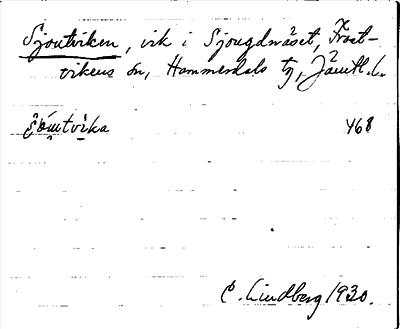 Sjoutviken, vik i Sjougdnäset, Frost-
vikens sn, Hammerdals tg, Jämtl. l.
468
C. Lindberg 1930.